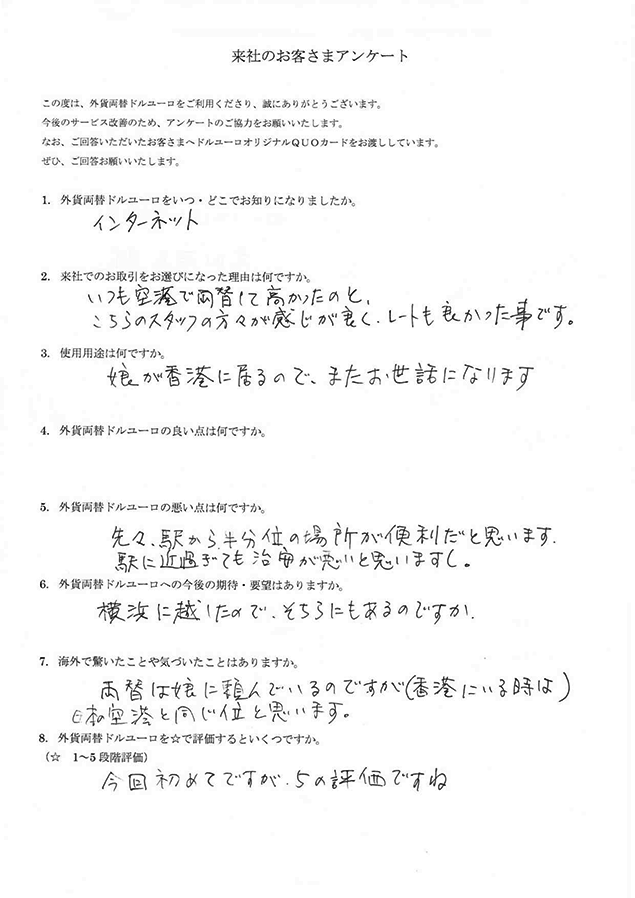 来社のお客さまアンケート
この度は、外貨両替ドルユーロをご利用くださり、誠にありがとうございます。
今後のサービス改善のため、アンケートのご協力をお願いいたします。
なお、ご回答いただいたお客さまへドルユーロオリジナルQUOカードをお渡ししています。
ぜひ、ご回答お願いいたします。
1. 外貨両替ドルユーロをいつ・どこでお知りになりましたか。
インターネット
2. 来社でのお取引をお選びになった理由は何ですか。
いつも空港で両替して高かったのと、
こちらのスタッフの方々が感じが良く、レートも良かった事です。
3. 使用用途は何ですか。
娘が香港に居るので、またお世話になります
4. 外貨両替ドルユーロの良い点は何ですか。
5. 外貨両替ドルユーロの悪い点は何ですか。
先々、駅から半分位の場所が便利だと思います.
駅に近過ぎても治安が悪いと思いますし。
6. 外貨両替ドルユーロへの今後の期待・要望はありますか。
横浜に越したので、そちらにもあるのですか.
7. 海外で驚いたことや気づいたことはありますか。
両替は娘に頼んでいるのですが(香港にいる時は)
日本の空港と同じ位と思います。
8. 外貨両替ドルユーロを☆で評価するといくつですか。
（☆ 1～5 段階評価）
今回初めてですが、5の評価ですね